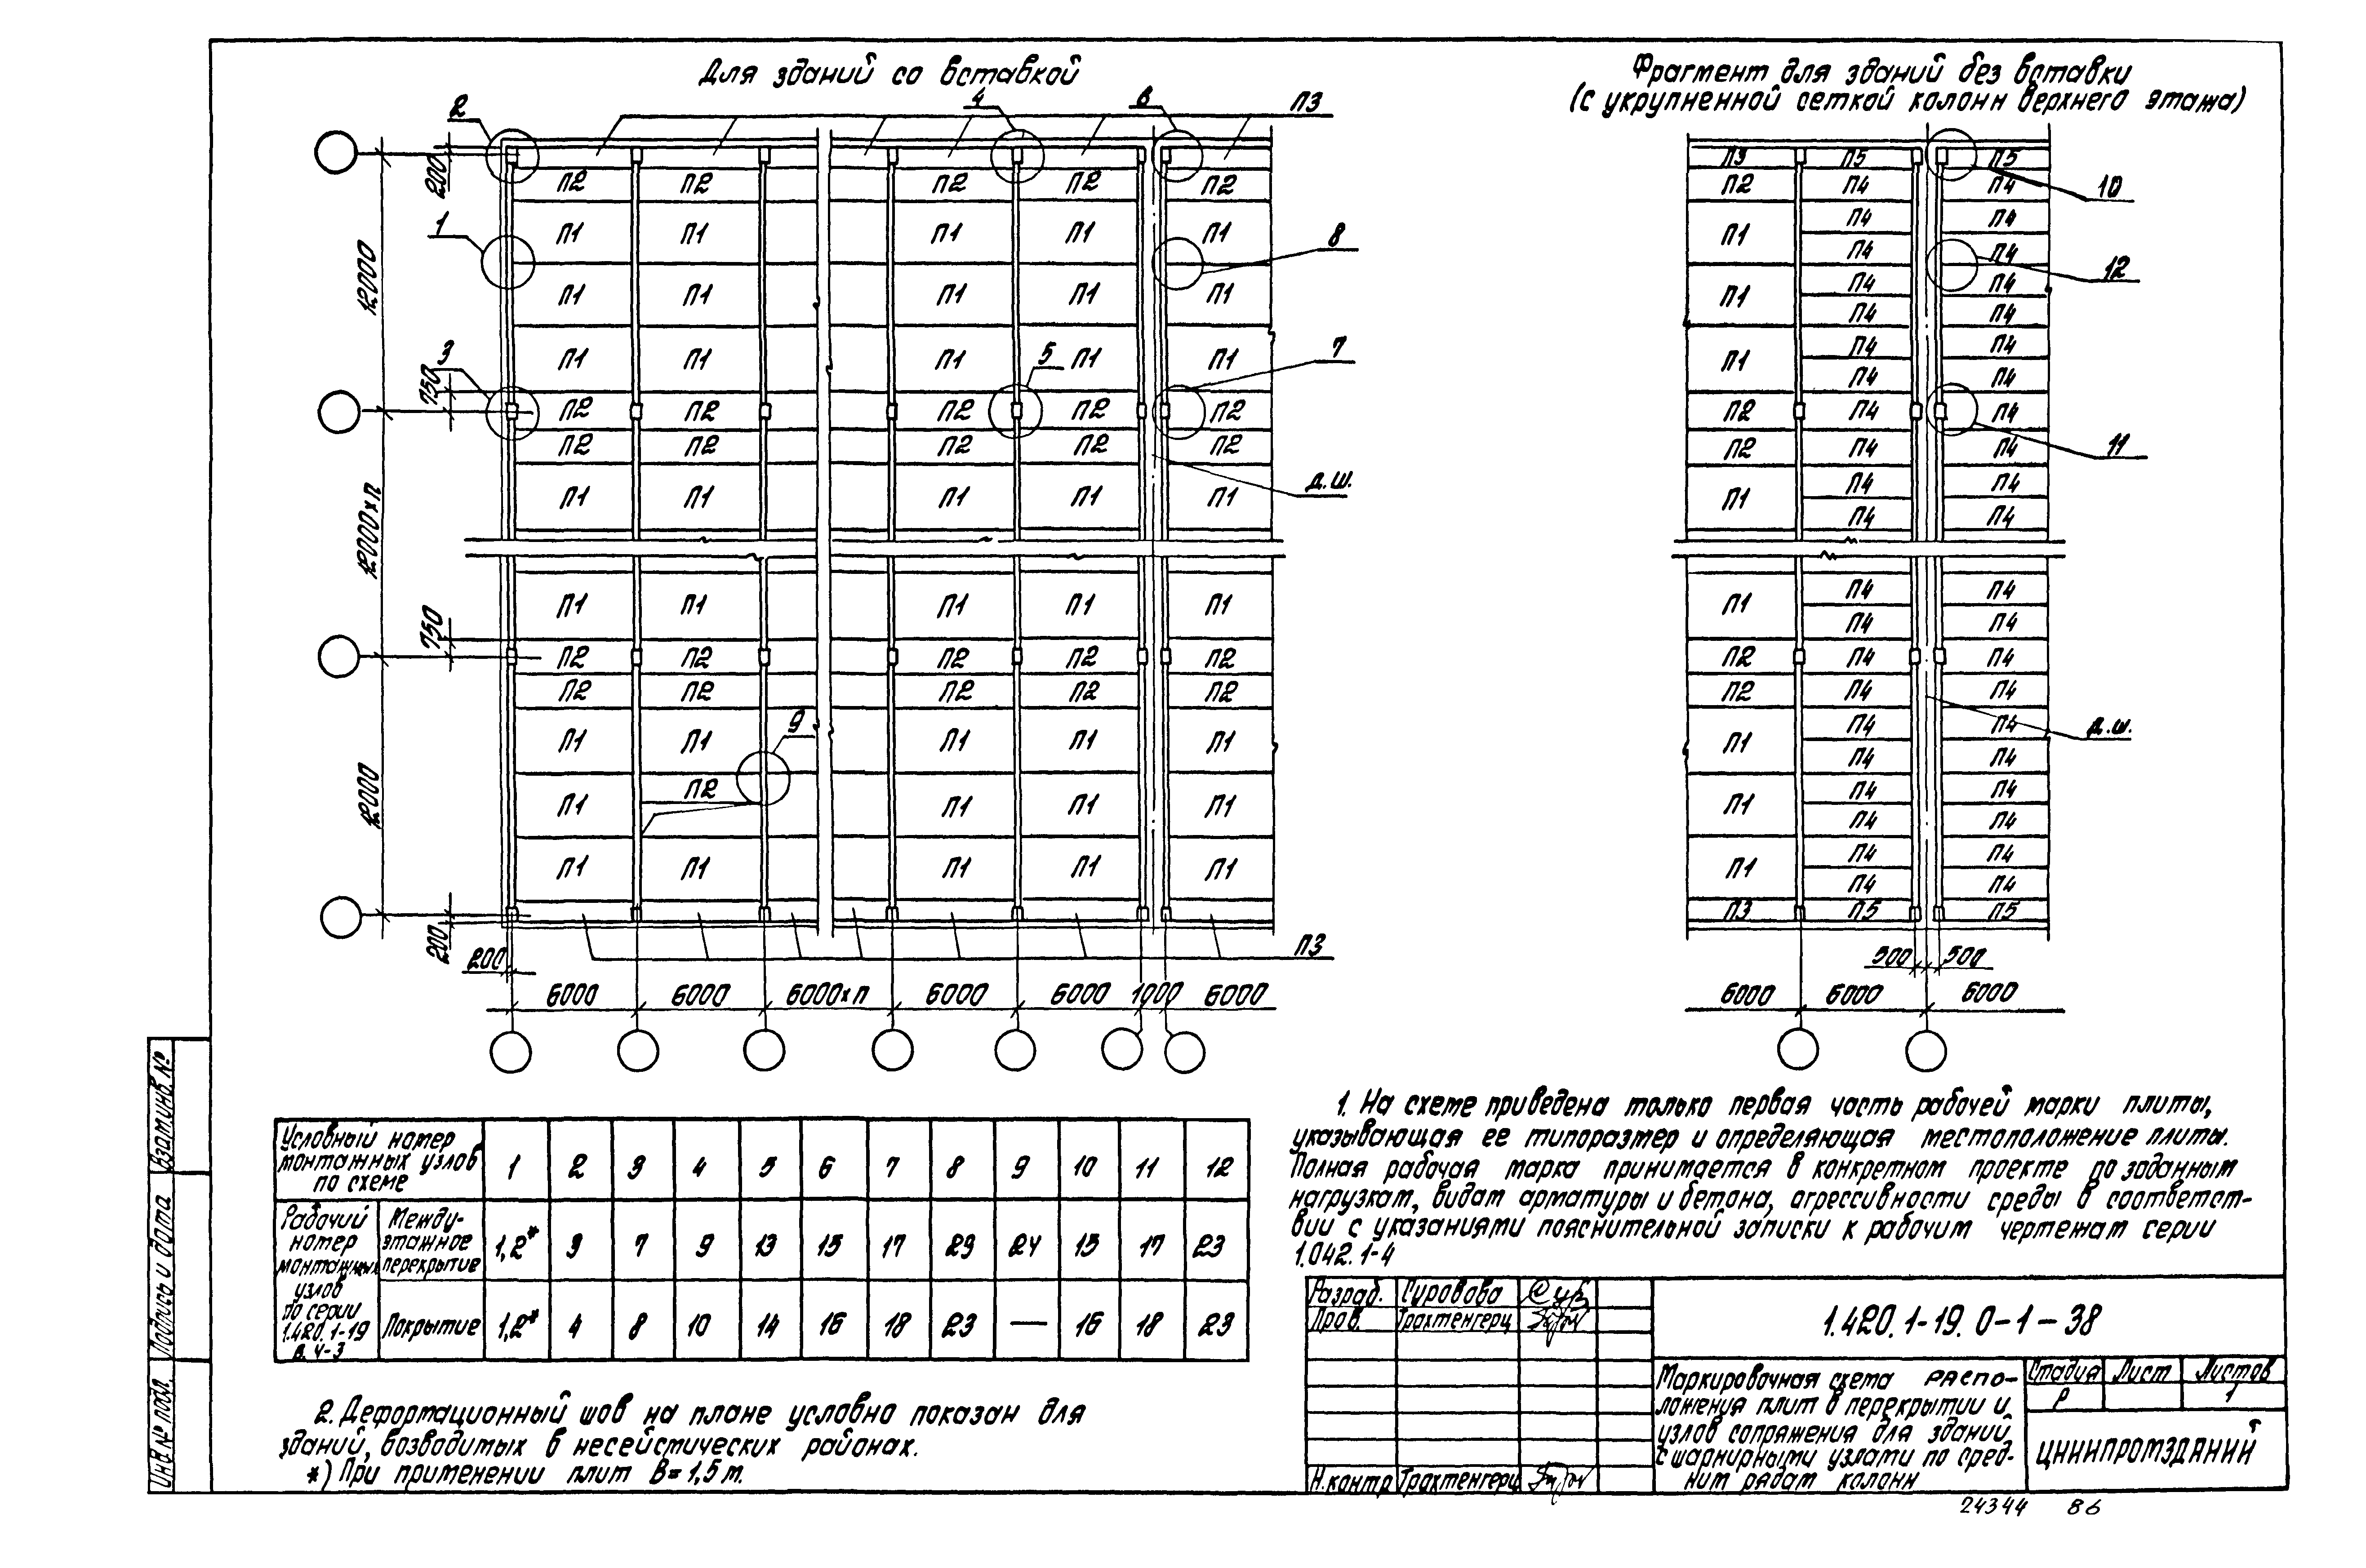 Для зданий со вставкой
Фрагмент для зданий без вставки
(с укрупненной сеткой колонн верхнего этажа)
2 4 6 П3
200 П2 П2 П2 П2 П2
1 П1 П1 П1 П1 П1 8
12000 П1 П1 П1 П1 П1
3 750 П1 П1 П1 5 П1 П1 7
П2 П2 П2 П2 П2
П2 П2 П2 П2 П2
12000хп П1 П1 П1 П1 П1 д.ш.
П1 П1 П1 П1 П1
750 П2 П2 П2 П2 П2
П2 П2 П2 П2 П2
9
П1 П1 П1 П1 П1
12000 П1 П2 П1 П1 П1
П1 П1 П1 П1 П1
200 П3
200
6000 6000 6000хп 6000 6000 1000 6000
П3 П5 П5
П2 П4 П4 10
П1 П4 П4
П4 П4 12
П1 П4 П4
П4 П4
П1 П4 П4
П4 П4
П2 П4 П4
П2 П4 П4 11
П1 П4 П4
П4 П4
П1 П4 П4
П4 П4
П2 П4 П4
П2 П4 П4
П1 П4 П4 д.ш.
П4 П4
П1 П4 П4
П4 П4
П1 П4 П4
П4 П4
П3 П5 П5
500 500
6000 6000 6000
Условный номер монтажных узлов по схеме 1 2 3 4 5 6 7 8 9 10 11 12
Рабочий номер монтажных узлов по серии 1.420.1-19 в. 4-3
Между-этажное перекрытие 1,2* 3 7 9 13 15 17 29 24 15 17 23
Покрытие 1,2* 4 8 10 14 16 18 23 — 16 18 23
1. На схеме приведена только первая часть рабочей марки плиты,
указывающая ее типоразмер и определяющая местоположение плиты.
Полная рабочая марка принимается в конкретном проекте по заданным
нагрузкам, видам арматуры и бетона, агрессивности среды в соответст-
вии с указаниями пояснительной записки к рабочим чертежам серии
1.042.1-4
2. Деформационный шов на плане условно показан для
зданий, возводимых в несейсмических районах.
*) При применении плит В=1,5 м.
Разраб. Суровова
Пров. Трахтенгерц
Н.контр Трахтенгерц
1.420.1-19.0-1-38
Маркировочная схема распо-
ложения плит в перекрытии и
узлов сопряжения для зданий
с шарнирными узлами по сред-
ним рядам колонн
Стадия Лист Листов
Р 1
ЦНИИПРОМЗДАНИЙ
Взам.инв.№
Подпись и дата
Инв.№ подл.
24344 86